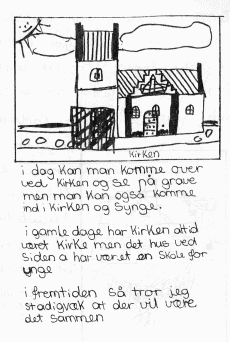 Kirken
i dag kan man komme over
ved kirken og se på grave
men man kan også komme
ind i kirken og synge.
i gamle dage har kirken altid
været kirke men det hus ved
siden a har været en skole for
ynge
i fremtiden så tror jeg
stadigvæk at der vil være
det sammen